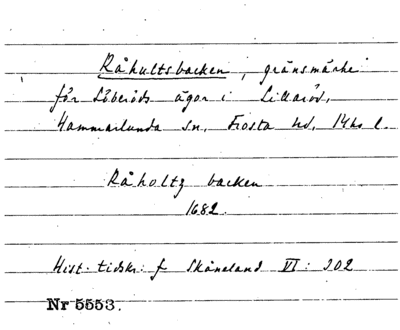 Råhultsbacken, gränsmärke
för Löberöds ägor i Lillaröd,
Hammarlunda sn, Frosta hd, M-hs l.
Råholtz backen
1682.
Hist. tidskr. f Skåneland VI: 302
Nr 5553.